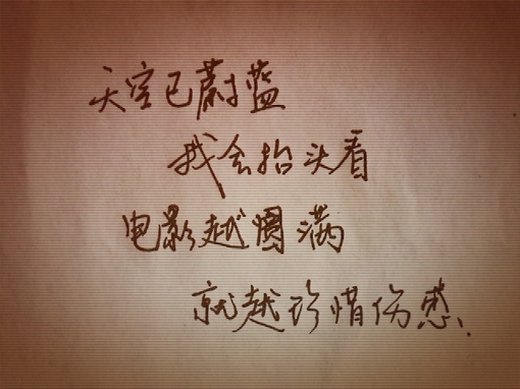 天空已蔚蓝
我会抬头看
电影越圆满
就越珍惜伤感、